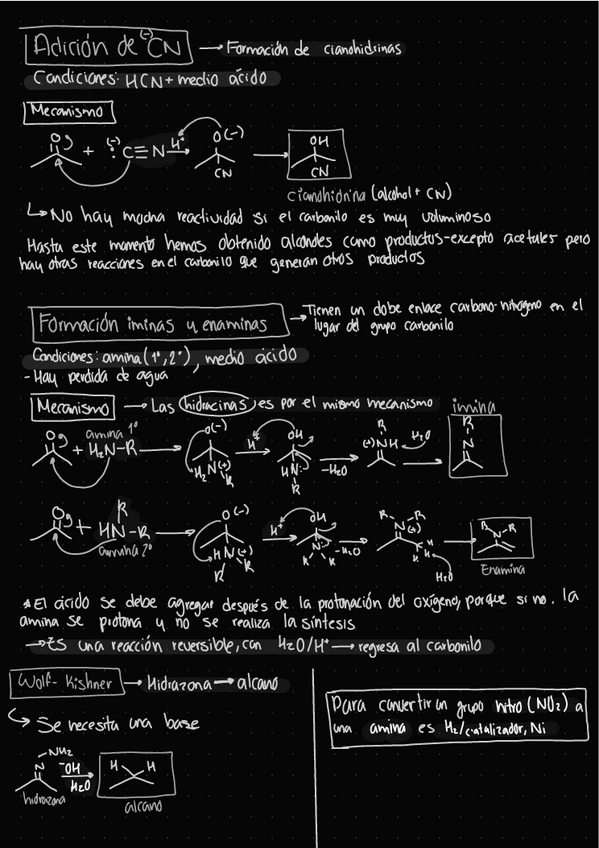 Adición de (-)CN → Formación de cianohidrinas
Condiciones: HCN + medio ácido
Mecanismo
O + (-):C≡N H⁺ → O(-) CN → OH CN
cianohidrina (alcohol + CN)
↳ No hay mucha reactividad si el carbonilo es muy voluminoso
Hasta este momento hemos obtenido alcoholes como productos-excepto acetales pero
hay otras reacciones en el carbonilo que generan otros productos
Formación iminas y enaminas → Tienen un dobe enlace carbono-nitrogeno en el
lugar del grupo carbonilo
Condiciones: amina (1°, 2°), medio ácido
- Hay perdida de agua
Mecanismo → Las hidracinas es por el mismo mecanismo
imina
amina 1°
O + H₂N-R → O(-) H₂N(+) R H⁺ → OH HN: R -H₂O → R (+)NH H₂O → R N
O + HN-R R → O(-) HN(+) R R H⁺ → OH N R R -H₂O → R R N(+) H H → R N R
amina 2°
H₂O
Enamina
* El ácido se debe agregar después de la protonación del oxígeno, porque si no, la
amina se protona y no se realiza la síntesis
→ Es una reacción reversible, con H₂O/H⁺ → regresa al carbonilo
Wolf-Kishner → Hidrazona → alcano
↳ Se necesita una base
NH₂
N ⁻OH H₂O → H H
hidrazona
alcano
Para convertir un grupo nitro (NO₂) a
una amina es H₂/catalizador, Ni